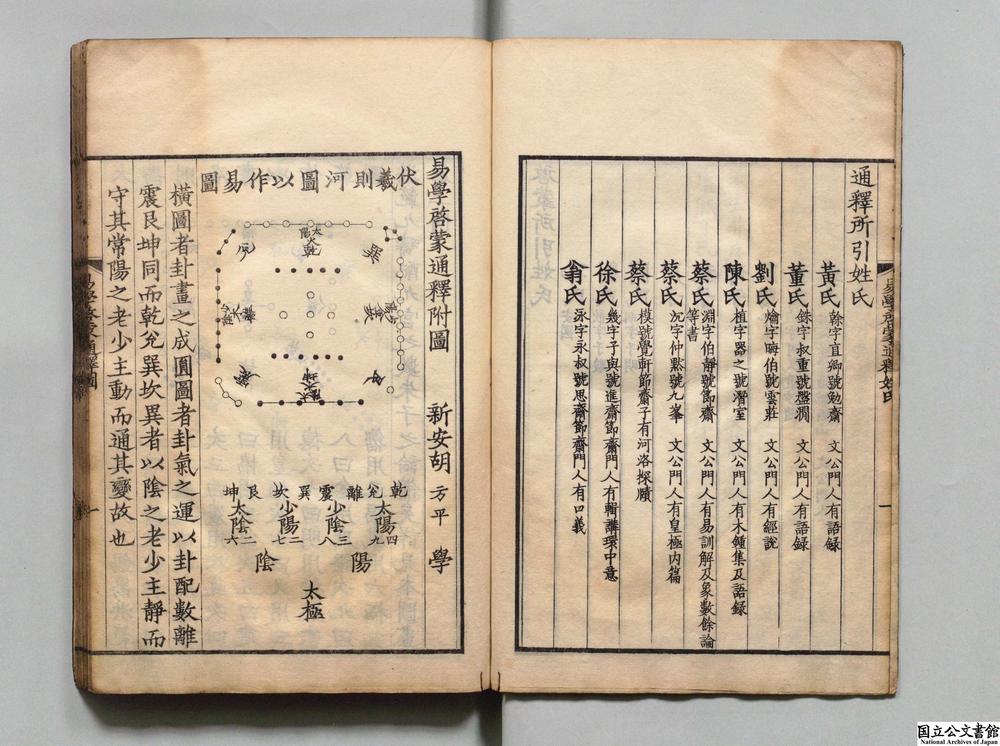 通釋所引姓氏
黃氏 榦字直卿號勉齋 文公門人有語録
董氏 銖字叔重號盤澗 文公門人有語録
劉氏 爚字晦伯號雲莊 文公門人有經說
陳氏 植字器之號潛室 文公門人有木鍾集及語録
蔡氏 淵字伯靜號節齋 文公門人有易訓解及象數餘論
等書
蔡氏 沉字仲黙號九峯 文公門人有皇極内篇
蔡氏 模號覺軒節齋子有河洛探賾
徐氏 幾字子與號進齋節齋門人有輯講環中意
翁氏 泳字永叔號思齋節齋門人有口義
易學啓蒙通釋姓氏
一
易學啓蒙通釋附圖 新安胡 方平 學
伏羲則河圖以作易圖
乾 兌 離 震 巽 坎 艮 坤
太陽四九 少陰三八 少陽二七 太陰六
陽 陰
太極
橫圖者卦畫之成圓圖者卦氣之運以卦配數離
震艮坤同而乾兌巽坎異者以陰之老少主靜而
守其常陽之老少主動而通其變故也
一
国立公文書館
National Archives of Japan